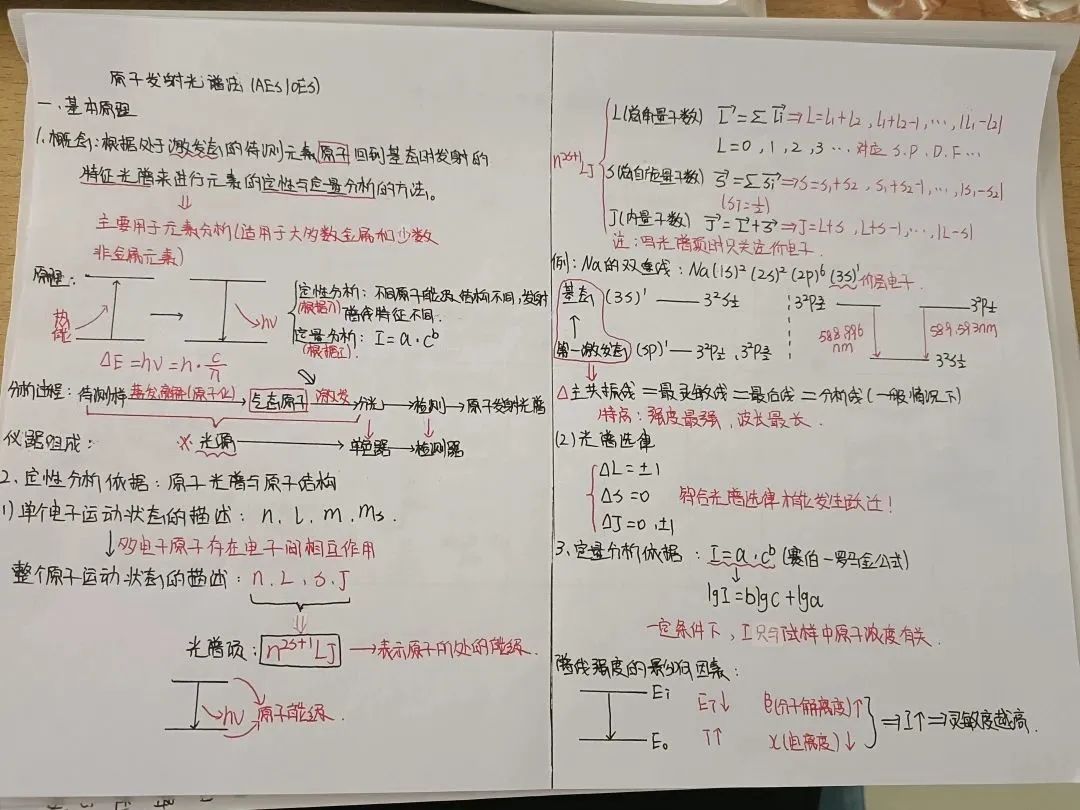 原子发射光谱法(AES/OES)
一.基本原理
1.概念:根据处于激发态的待测元素原子回到基态时发射的
特征光谱来进行元素的定性与定量分析的方法。
⇓
主要用于元素分析(适用于大多数金属和少数
非金属元素)
原理:
热能
hν
定性分析:不同原子能级结构不同,发射
(根据λ) 谱线特征不同.
定量分析: I=a·c^b
(根据I)
ΔE=hν=h·c/
分析过程:待测样 蒸发解离(原子化)→ 气态原子 激发→ 分光→检测→原子发射光谱
仪器组成: ※光源→单色器→检测器
2.定性分析依据:原子光谱与原子结构
1)单个电子运动状态的描述: n. l. m. ms.
↓多电子原子存在电子间相互作用
整个原子运动状态的描述: n. L. S. J
⇓
光谱项: n^2S+1 LJ →表示原子所处的能级.
hν 原子能级.
n^2S+1 LJ
L(总角量子数) L=ΣLi⇒L=L1+L2, L1+L2-1, …, |L1-L2|
L=0, 1, 2, 3 … 对应 S. P. D. F …
S(总自旋量子数) S=ΣSi⇒S=S1+S2, S1+S2-1, …, |S1-S2|
(Si=½)
J(内量子数) J=L+S ⇒J=L+S, L+S-1, …, |L-S|
注:写光谱项时只关注价电子.
例: Na的双重线: Na(1S)²(2S)²(2p)⁶(3S)¹价层电子.
基态 (3S)¹ — 3²S½
↑
第一激发态 (3p)¹ — 3²P½、3²P3/2
3²P3/2 3²P½
588.996 nm 589.593nm
3²S½
⇓
△主共振线=最灵敏线=最后线=分析线(一般情况下)
特点:强度最强,波长最长.
(2)光谱选律
ΔL=±1
ΔS=0 符合光谱选律才能发生跃迁!
ΔJ=0,±1
3.定量分析依据: I=a·c^b(赛伯-罗马金公式)
↓
lgI=blgc+lga
一定条件下, I只与试样中原子浓度有关.
谱线强度的影响因素:
Ei Ei↓ β(分子解离度)↑
⇒I↑⇒灵敏度越高.
E₀ T↑ χ(电离度)↓